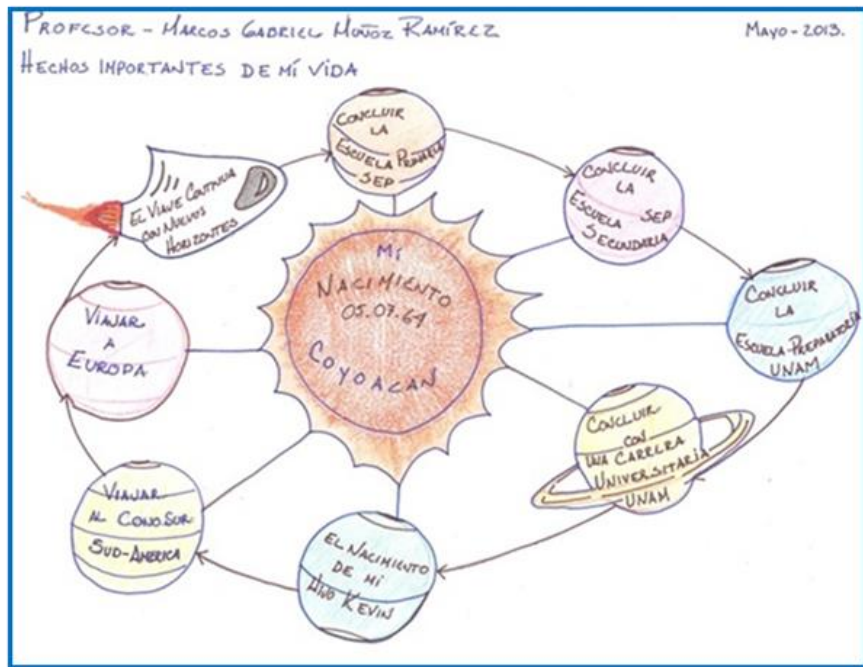 PROFESOR - MARCOS GABRIEL MUÑOZ RAMÍREZ
MAYO - 2013.
HECHOS IMPORTANTES DE MÍ VIDA
MÍ
NACIMIENTO
05.07.64
COYOACAN
CONCLUIR
LA
ESCUELA PRIMARIA
SEP
CONCLUIR
LA
ESCUELA SEP
SECUNDARIA
CONCLUIR
LA
ESCUELA-PREPARATORIA
UNAM
CONCLUIR
CON
UNA CARRERA
UNIVERSITARIA
UNAM
EL NACIMIENTO
DE MÍ
HIJO KEVIN
VIAJAR
AL CONO SUR
SUD-AMERICA
VIAJAR
A
EUROPA
EL VIAJE CONTINUA
CON NUEVOS
HORIZONTES